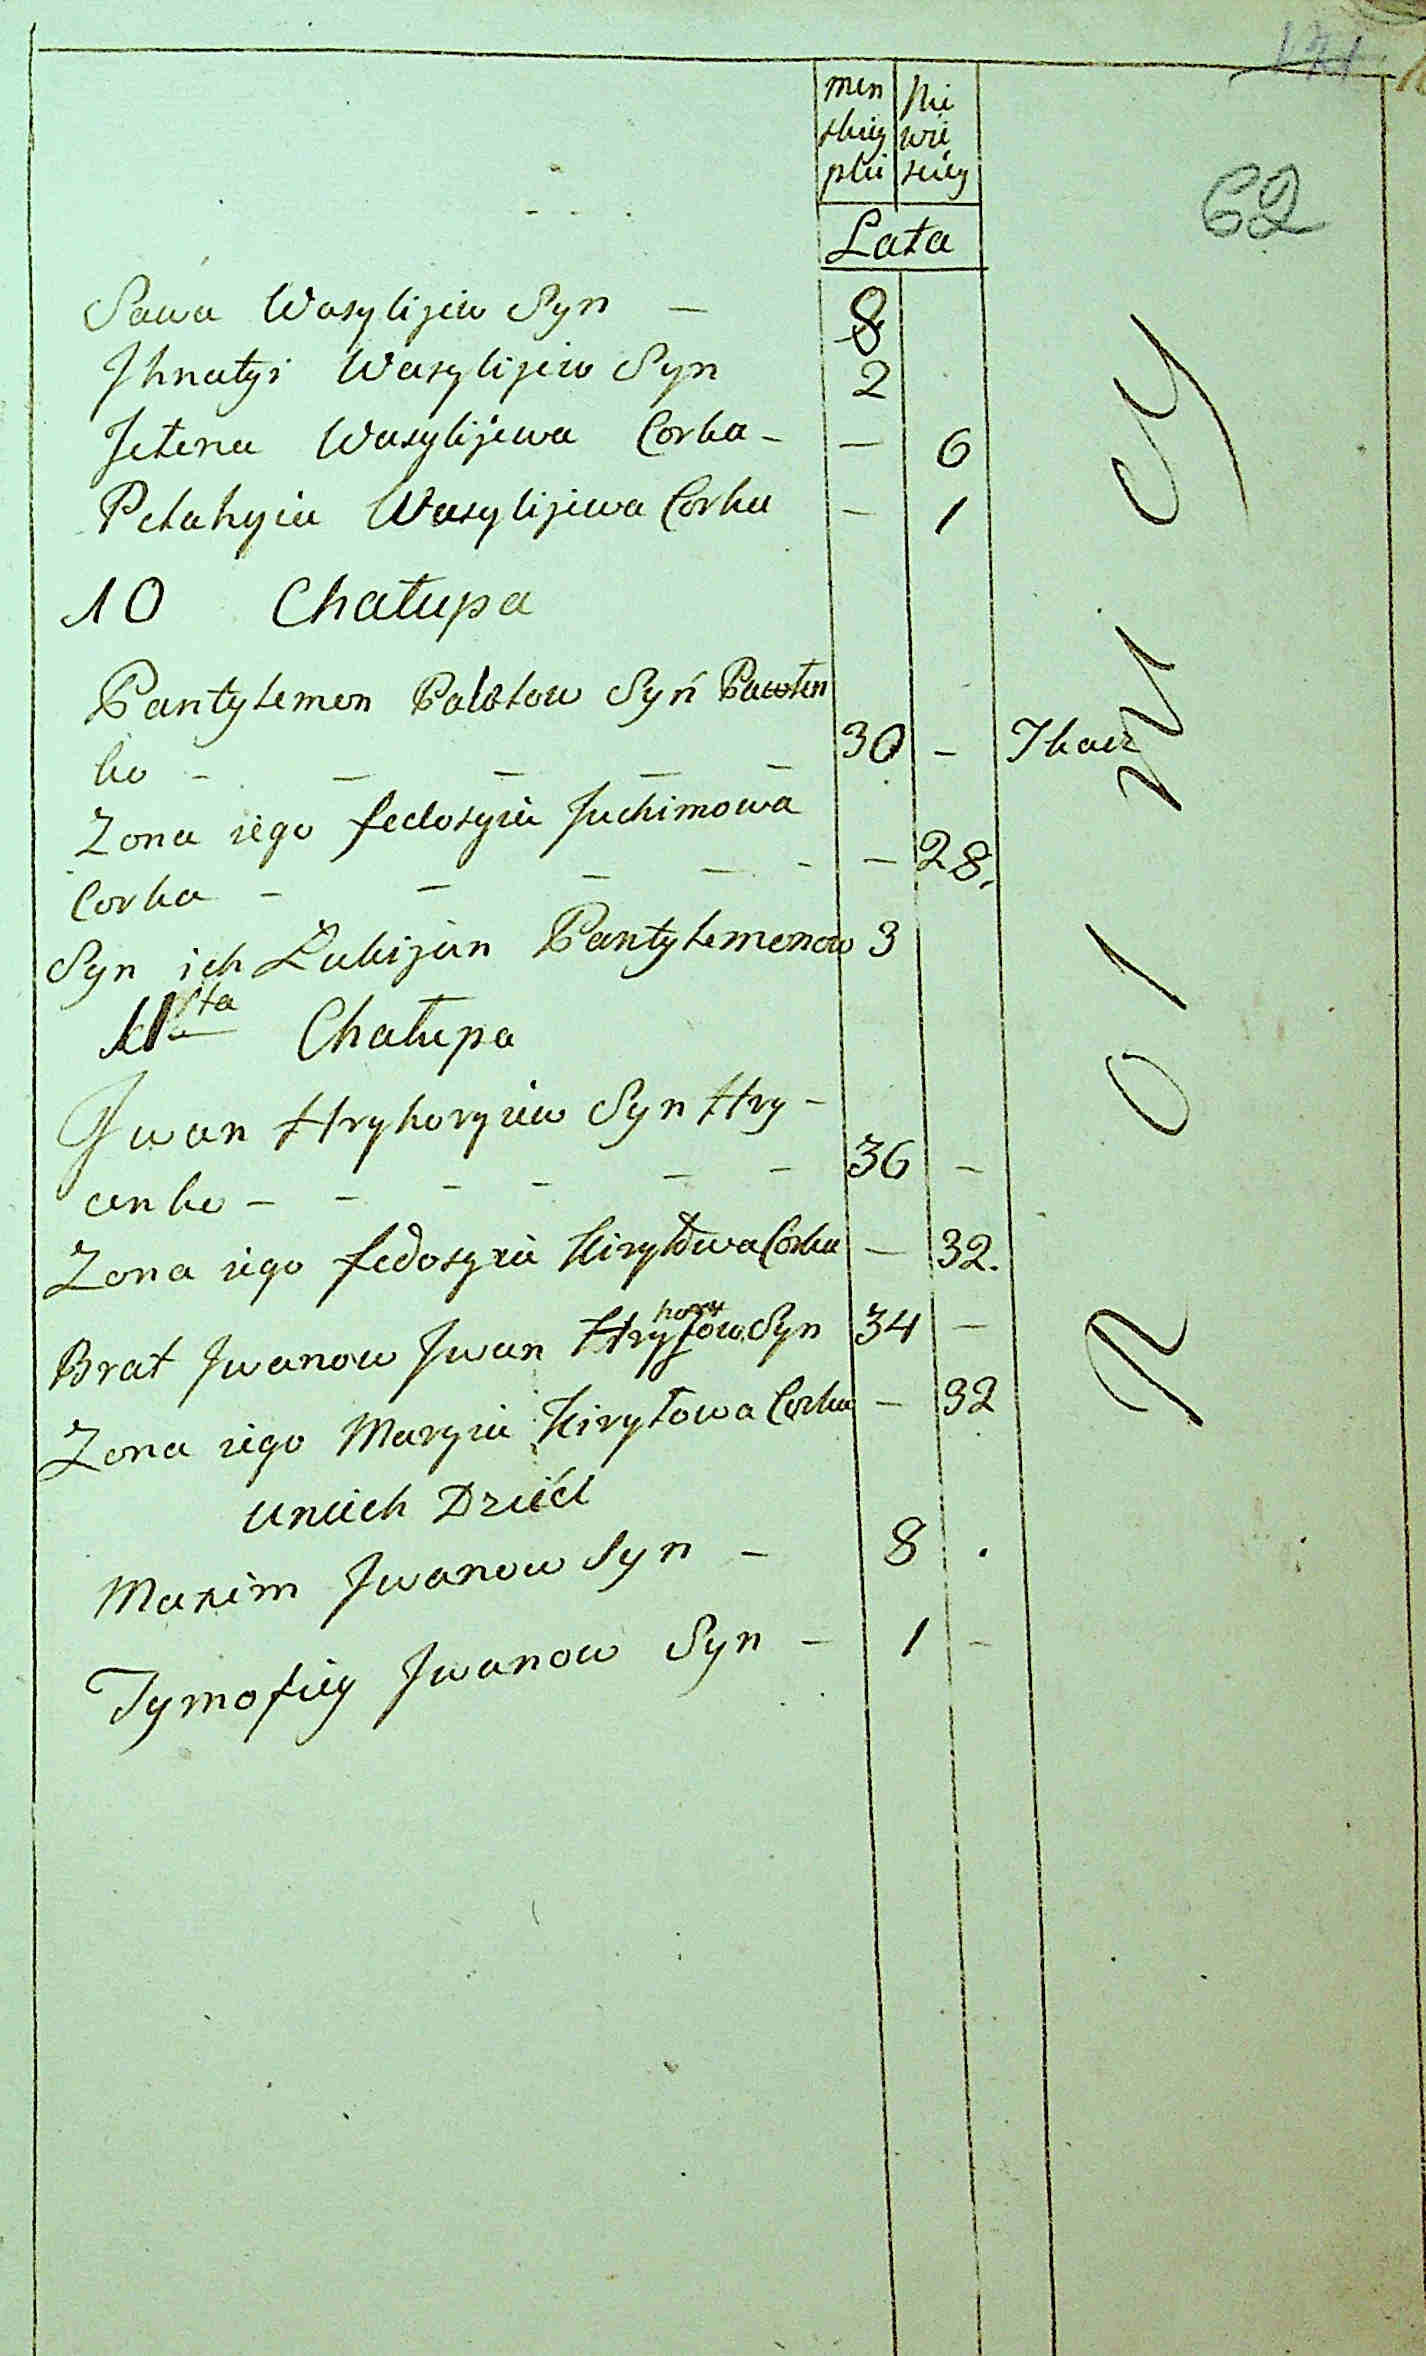 171
62
men skiey płci
Nie wie sciey
Lata
Sawa Wasylijew Syn — 8
Jhnatyi Wasylijew Syn 2
Jełena Wasylijewa Corka - — 6
Pełahyia Wasylijewa Corka — 1
10 Chałupa
Pantylemon Pawłow Syn Pawłen
ko - — — — — 30 - Tkacz
Zona iego fedosyia Juchimowa
Corka - — — — - — 28.
Syn ich Łukijan Pantylemonow 3
11sta Chałupa
Jwan Hryhoryiew Syn Hry -
cenko - - - - — - 36 -
Zona iego fedosyia Kiryłowa Corka — 32.
Brat Jwanow Jwan Hryhorow Syn 34 —
Zona iego Maryia Kiryłowa Corka — 32
unich Dzieci
Maxim Jwanow Syn — 8 .
Tymofiey Jwanow Syn — 1 -
R O I N I C Y